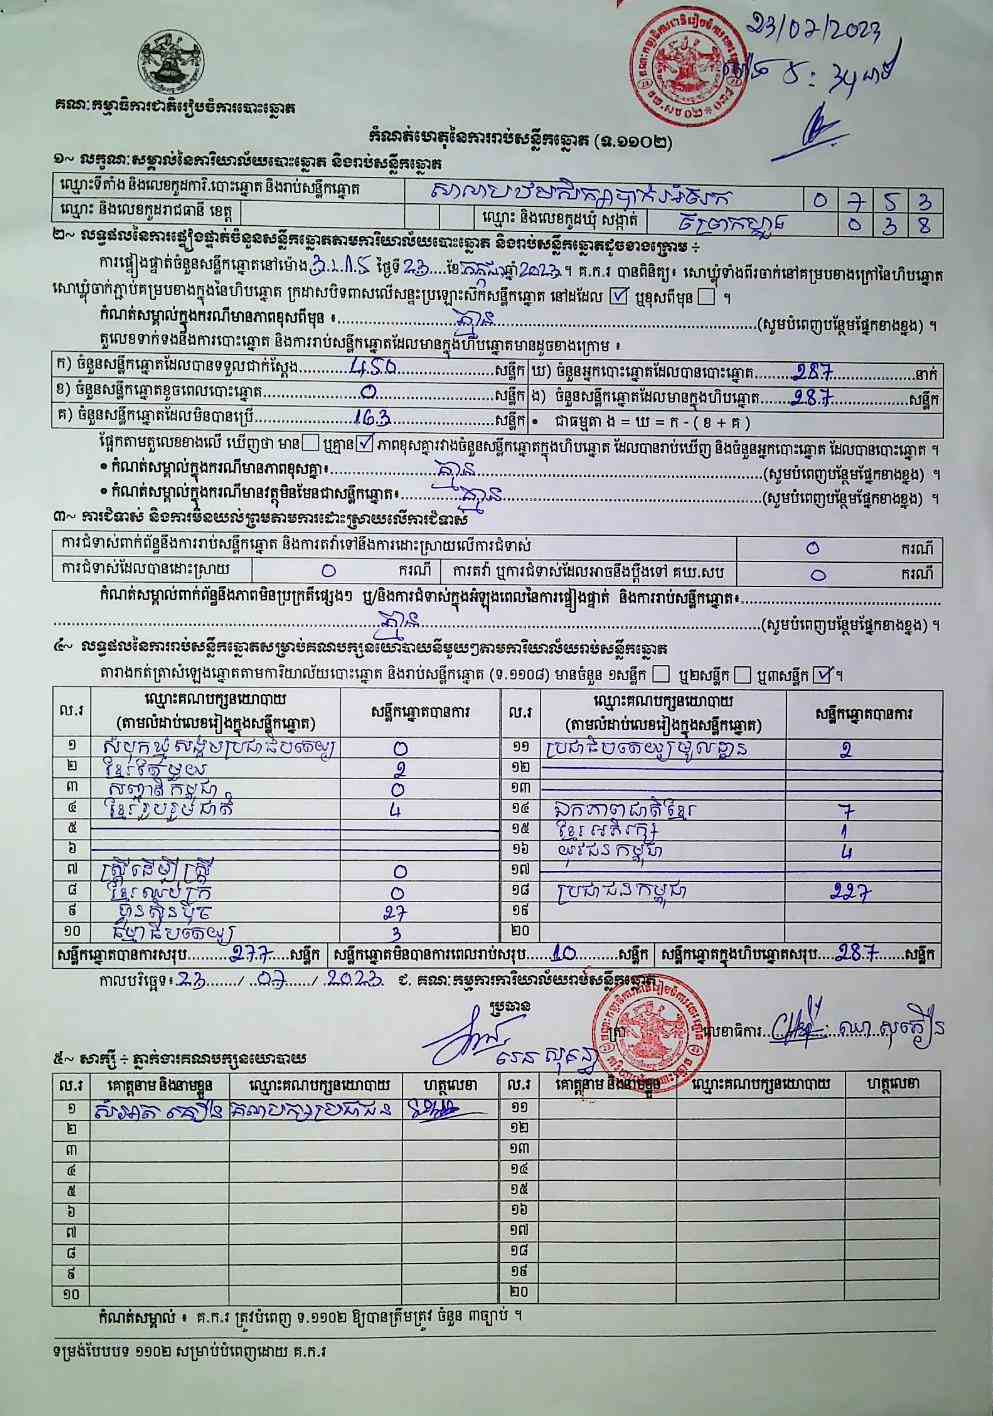 23/07/2023
គណៈកម្មាធិការជាតិរៀបចំការបោះឆ្នោត
ម៉ោង ៤: ៣៤ នាទី
កំណត់ហេតុនៃការរាប់សន្លឹកឆ្នោត (ទ.១១០២)
១~ លក្ខណៈសម្គាល់នៃការិយាល័យបោះឆ្នោត និងរាប់សន្លឹកឆ្នោត
ឈ្មោះទីតាំង និងលេខកូដការិ.បោះឆ្នោត និងរាប់សន្លឹកឆ្នោត សាលាបឋមសិក្សា 0 7 5 3
ឈ្មោះ និងលេខកូដរាជធានី ខេត្ត ឈ្មោះ និងលេខកូដឃុំ សង្កាត់ 0 3 8
២~ លទ្ធផលនៃការផ្ទៀងផ្ទាត់ចំនួនសន្លឹកឆ្នោតតាមការិយាល័យបោះឆ្នោត និងរាប់សន្លឹកឆ្នោតដូចខាងក្រោម ÷
ការផ្ទៀងផ្ទាត់ចំនួនសន្លឹកឆ្នោតនៅម៉ោង ថ្ងៃទី 23 ខែ កក្កដា ឆ្នាំ 2023 ។ គ.ក.រ បានពិនិត្យ៖ សោឃ្លុំទាំងពីរចាក់នៅគម្របខាងក្រៅនៃហិបឆ្នោត
សោឃ្លុំចាក់ភ្ជាប់គម្របខាងក្នុងនៃហិបឆ្នោត ក្រដាសបិទពាសលើសន្ទះប្រឡោះស៊កសន្លឹកឆ្នោត នៅដដែល ☑ ឬខុសពីមុន ☐ ។
កំណត់សម្គាល់ក្នុងករណីមានភាពខុសពីមុន ៖ គ្មាន (សូមបំពេញបន្ថែមផ្នែកខាងខ្នង) ។
តួលេខទាក់ទងនឹងការបោះឆ្នោត និងការរាប់សន្លឹកឆ្នោតដែលមានក្នុងហិបឆ្នោតមានដូចខាងក្រោម ៖
ក) ចំនួនសន្លឹកឆ្នោតដែលបានទទួលជាក់ស្តែង 450 សន្លឹក ឃ) ចំនួនអ្នកបោះឆ្នោតដែលបានបោះឆ្នោត 287 នាក់
ខ) ចំនួនសន្លឹកឆ្នោតខូចពេលបោះឆ្នោត 0 សន្លឹក ង) ចំនួនសន្លឹកឆ្នោតដែលមានក្នុងហិបឆ្នោត 287 សន្លឹក
គ) ចំនួនសន្លឹកឆ្នោតដែលមិនបានប្រើ 163 សន្លឹក • ជាធម្មតា ង = ឃ = ក - ( ខ + គ )
ផ្អែកតាមតួលេខខាងលើ ឃើញថា មាន ☐ ឬគ្មាន ☑ ភាពខុសគ្នារវាងចំនួនសន្លឹកឆ្នោតក្នុងហិបឆ្នោត ដែលបានរាប់ឃើញ និងចំនួនអ្នកបោះឆ្នោត ដែលបានបោះឆ្នោត ។
• កំណត់សម្គាល់ក្នុងករណីមានភាពខុសគ្នា៖ គ្មាន (សូមបំពេញបន្ថែមផ្នែកខាងខ្នង) ។
• កំណត់សម្គាល់ក្នុងករណីមានវត្ថុមិនមែនជាសន្លឹកឆ្នោត៖ គ្មាន (សូមបំពេញបន្ថែមផ្នែកខាងខ្នង) ។
៣~ ការជំទាស់ និងការមិនយល់ព្រមតាមការដោះស្រាយលើការជំទាស់
ការជំទាស់ពាក់ព័ន្ធនឹងការរាប់សន្លឹកឆ្នោត និងការតវ៉ាទៅនឹងការដោះស្រាយលើការជំទាស់ 0 ករណី
ការជំទាស់ដែលបានដោះស្រាយ 0 ករណី ការតវ៉ា ឬការជំទាស់ដែលអាចនឹងប្តឹងទៅ គឃ.សប 0 ករណី
កំណត់សម្គាល់ពាក់ព័ន្ធនឹងភាពមិនប្រក្រតីផ្សេងៗ ឬ/និងការជំទាស់ក្នុងអំឡុងពេលនៃការផ្ទៀងផ្ទាត់ និងការរាប់សន្លឹកឆ្នោត៖
គ្មាន (សូមបំពេញបន្ថែមផ្នែកខាងខ្នង) ។
៤~ លទ្ធផលនៃការរាប់សន្លឹកឆ្នោតសម្រាប់គណបក្សនយោបាយនីមួយៗតាមការិយាល័យរាប់សន្លឹកឆ្នោត
តារាងកត់ត្រាសំឡេងឆ្នោតតាមការិយាល័យបោះឆ្នោត និងរាប់សន្លឹកឆ្នោត (ទ.១១០៨) មានចំនួន ១សន្លឹក ☐ ឬ២សន្លឹក ☐ ឬ៣សន្លឹក ☑ ។
ល.រ ឈ្មោះគណបក្សនយោបាយ (តាមលំដាប់លេខរៀងក្នុងសន្លឹកឆ្នោត) សន្លឹកឆ្នោតបានការ ល.រ ឈ្មោះគណបក្សនយោបាយ (តាមលំដាប់លេខរៀងក្នុងសន្លឹកឆ្នោត) សន្លឹកឆ្នោតបានការ
១ សំបុកឃ្មុំសង្គមប្រជាធិបតេយ្យ 0 ១១ ប្រជាធិបតេយ្យមូលដ្ឋាន 2
២ ខ្មែរតែមួយ 2 ១២
៣ សញ្ជាតិកម្ពុជា 0 ១៣
៤ ខ្មែររួបរួមជាតិ 4 ១៤ ឯកភាពជាតិខ្មែរ 7
៥ ១៥ ខ្មែរអភិរក្ស 1
៦ ១៦ យុវជនកម្ពុជា 4
៧ ស្រ្តីដើម្បីស្រ្តី 0 ១៧
៨ ខ្មែរឈប់ក្រ 0 ១៨ ប្រជាជនកម្ពុជា 227
៩ ហ៊្វុនស៊ិនប៉ិច 27 ១៩
១០ ធម្មាធិបតេយ្យ 3 ២០
សន្លឹកឆ្នោតបានការសរុប 277 សន្លឹក សន្លឹកឆ្នោតមិនបានការពេលរាប់សរុប 10 សន្លឹក សន្លឹកឆ្នោតក្នុងហិបឆ្នោតសរុប 287 សន្លឹក
កាលបរិច្ឆេទ៖ 23 / 07 / 2023 ជ. គណៈកម្មការការិយាល័យរាប់សន្លឹកឆ្នោត
ប្រធាន
លេខាធិការ ណុ សុភឿន
៥~ សាក្សី ÷ ភ្នាក់ងារគណបក្សនយោបាយ
ល.រ គោត្តនាម និងនាមខ្លួន ឈ្មោះគណបក្សនយោបាយ ហត្ថលេខា ល.រ គោត្តនាម និងនាមខ្លួន ឈ្មោះគណបក្សនយោបាយ ហត្ថលេខា
១ គណបក្សប្រជាជន ១១
២ ១២
៣ ១៣
៤ ១៤
៥ ១៥
៦ ១៦
៧ ១៧
៨ ១៨
៩ ១៩
១០ ២០
កំណត់សម្គាល់ ៖ គ.ក.រ ត្រូវបំពេញ ទ.១១០២ ឱ្យបានត្រឹមត្រូវ ចំនួន ៣ច្បាប់ ។
ទម្រង់បែបបទ ១១០២ សម្រាប់បំពេញដោយ គ.ក.រ